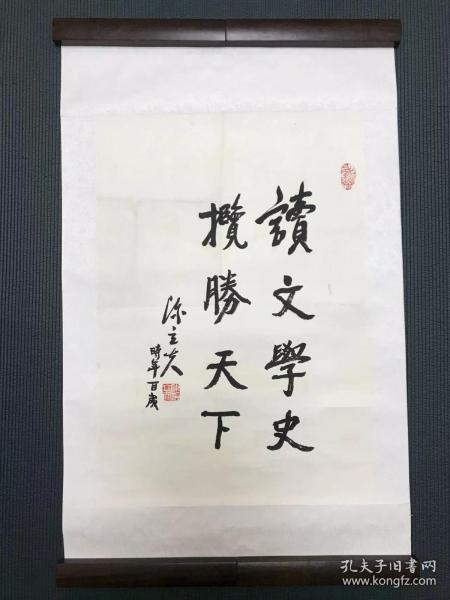 讀文學史
攬勝天下
陳立夫
時年百歲
孔夫子旧书网
www.kongfz.com